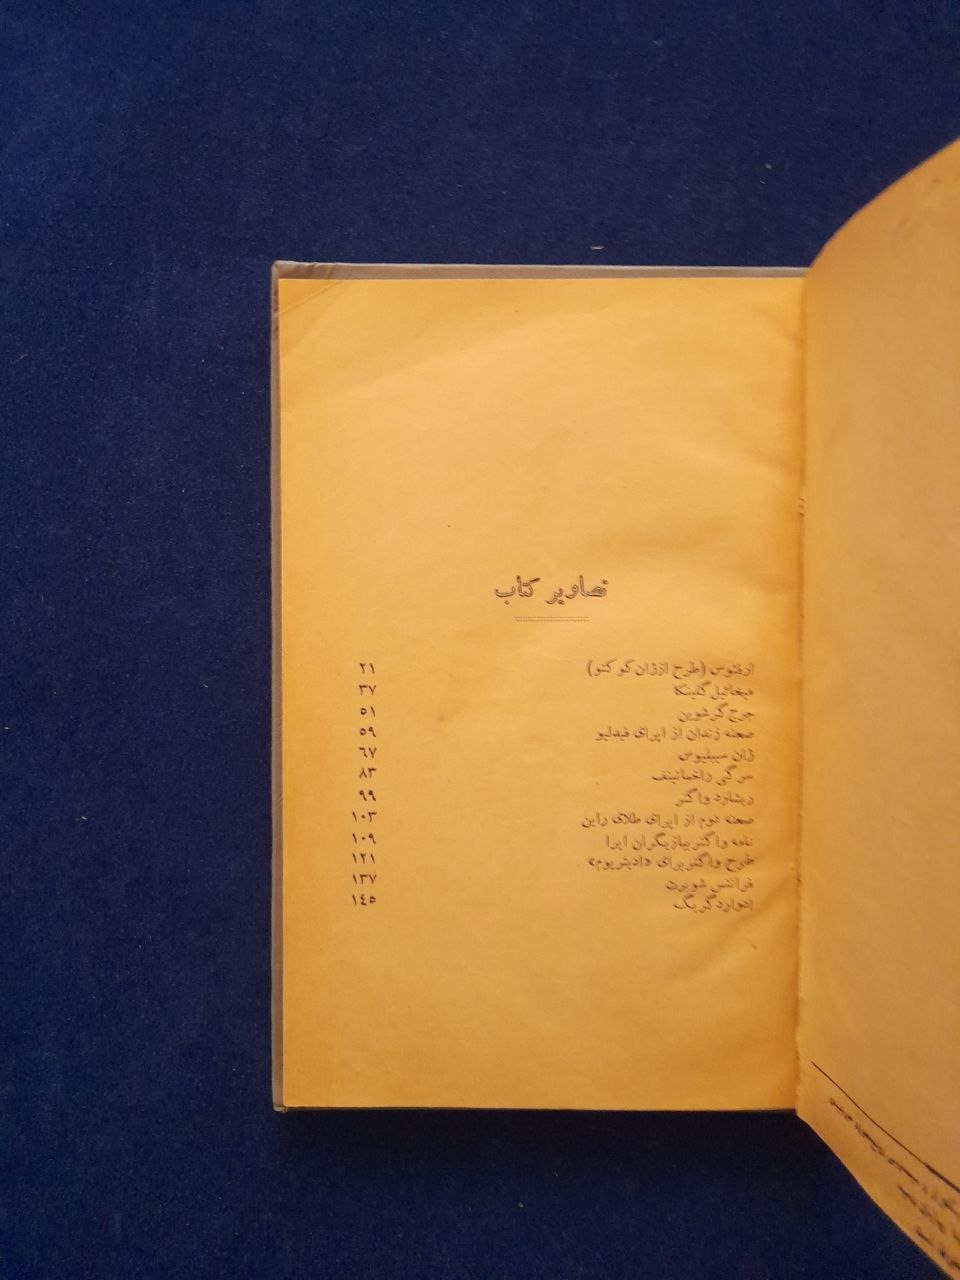 تصاویر کتاب
ارفئوس (طرح از ژان کوکتو) ۲۱
میخائیل گلینکا ۳۷
جرج گرشوین ۵۱
صحنه زندان از اپرای فیدلیو ۵۹
ژان سیبلیوس ۶۷
سرگی راخمانینف ۸۳
ریشارد واگنر ۹۹
صحنه دوم از اپرای طلای راین ۱۰۳
نامه واگنر ببازیگران اپرا ۱۰۹
طرح واگنر برای «ادیتریوم» ۱۲۱
فرانتس شوبرت ۱۳۷
ادوارد گریگ ۱۴۵